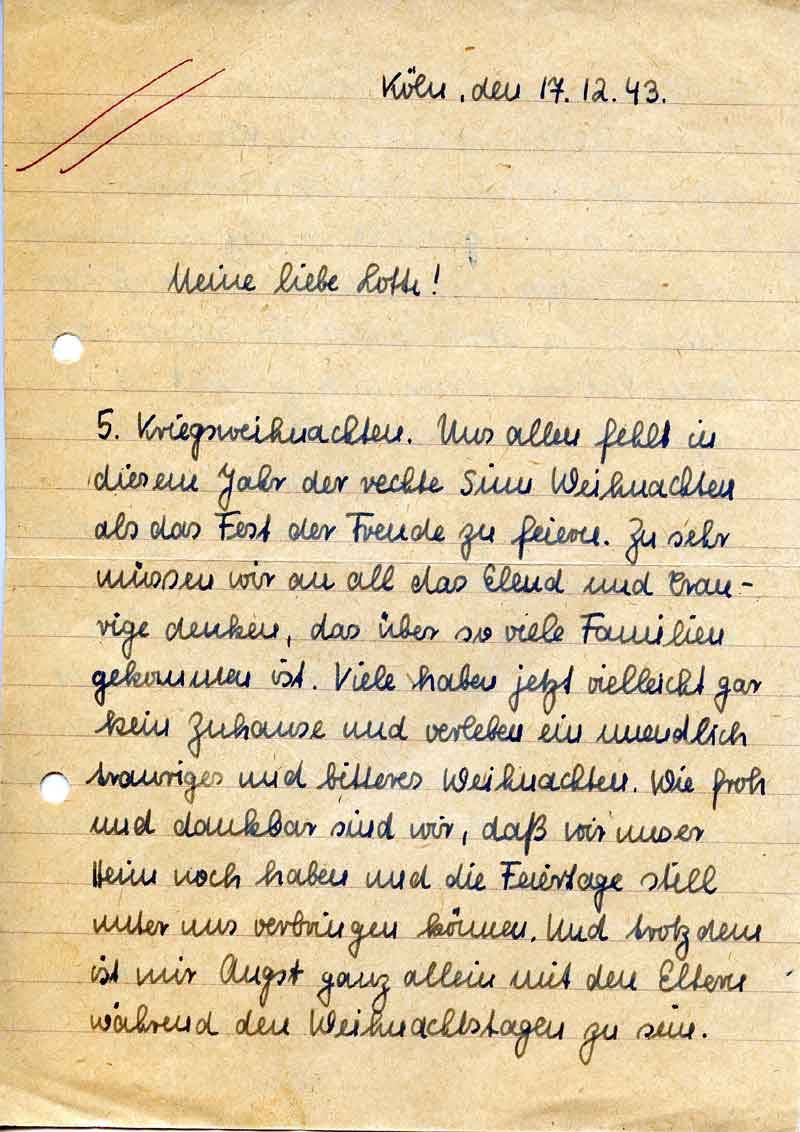 Köln, den 17.12.43.
Meine liebe Lotte!
5. Kriegsweihnachten. Uns allen fehlt in
diesem Jahr der rechte Sinn Weihnachten
als das Fest der Freude zu feiern. Zu sehr
müssen wir an all das Elend und Trau-
rige denken, das über so viele Familien
gekommen ist. Viele haben jetzt vielleicht gar
kein Zuhause und verleben ein unendlich
trauriges und bitteres Weihnachten. Wie froh
und dankbar sind wir, daß wir unser
Heim noch haben und die Feiertage still
unter uns verbringen können. Und trotzdem
ist mir Angst ganz allein mit den Eltern
während den Weihnachtstagen zu sein.